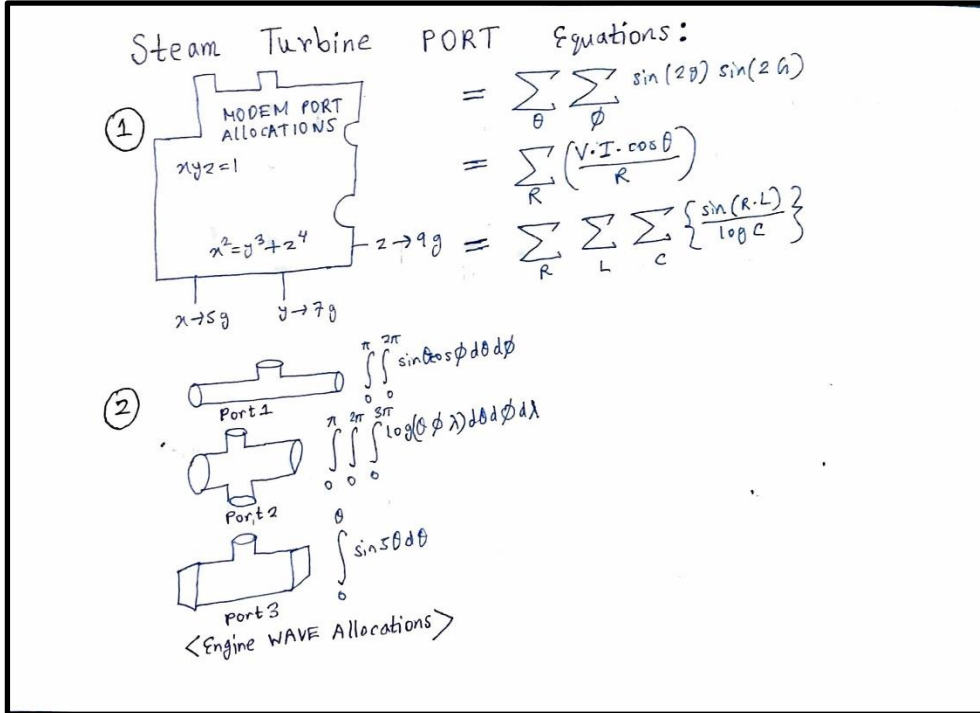 Steam Turbine PORT Equations:
1
MODEM PORT
ALLOCATIONS
xyz=1
x²=y³+z⁴
z→9g
x→5g
y→7g
= ∑θ ∑φ sin(2θ) sin(2G)
= ∑R (V·I·cosθ/R)
= ∑R ∑L ∑C {sin(R·L)/log C}
2
Port 1
∫₀^π ∫₀^2π sinθcosφdθdφ
Port 2
∫₀^π ∫₀^2π ∫₀^3π log(θφλ)dθdφdλ
Port 3
∫₀^θ sin5θdθ
<Engine WAVE Allocations>